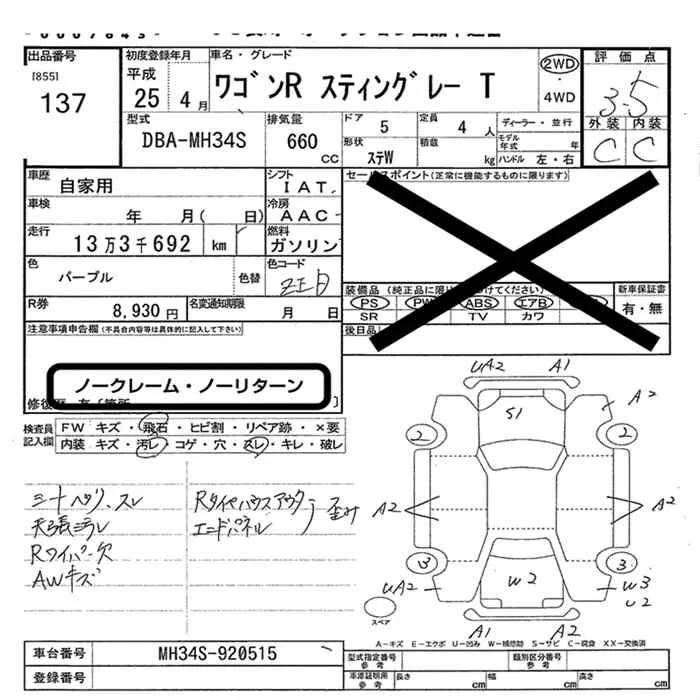 出品番号
[855]
137
初度登録年月
平成
25 4月
車名・グレード
ワゴンR スティングレー T
2WD
4WD
評価点
3.5
外装 内装
C C
型式
DBA-MH34S
排気量
660
CC
ドア 5
定員 4 人
ディーラー・並行
形状 ステW
積載 kg
モデル年式 年
ハンドル 左・右
車歴
自家用
シフト
IAT
セールスポイント(正常に機能するものに限ります)
車検
年 月( 日)
冷房
AAC
走行
13万3千692 km
燃料
ガソリン
色
パープル
色替
色コード
ZJ日
装備品(純正品に限り
けてください)
新車保証書
PS PW ABS エアB
有・無
SR TV カワ
後日品
R券
8,930円
名変通知期限
月 日
注意事項申告欄(不具合内容等は具体的に記入して下さい)
ノークレーム・ノーリターン
検査員
記入欄
FW キズ・飛石・ヒビ割・リペア跡・×要
内装 キズ・汚レ・コゲ・穴・スレ・キレ・破レ
天張ミラレ
Rワイパー欠
AWキズ
Rタイヤハウスアウター
エンドパネル
歪み
UA2 A1
S1
A2
2 2
A2 A2
3 3
UA2
W2
W3
U2
A1 A2
スペア
A-キズ E-エクボ U-凹み W-補修跡 S-サビ C-腐食 XX-交換済
車台番号
MH34S-920515
登録番号
型式指定番号
参考
類別区分番号
参考
車庫証明用
参考
長さ cm
幅 cm
高さ cm